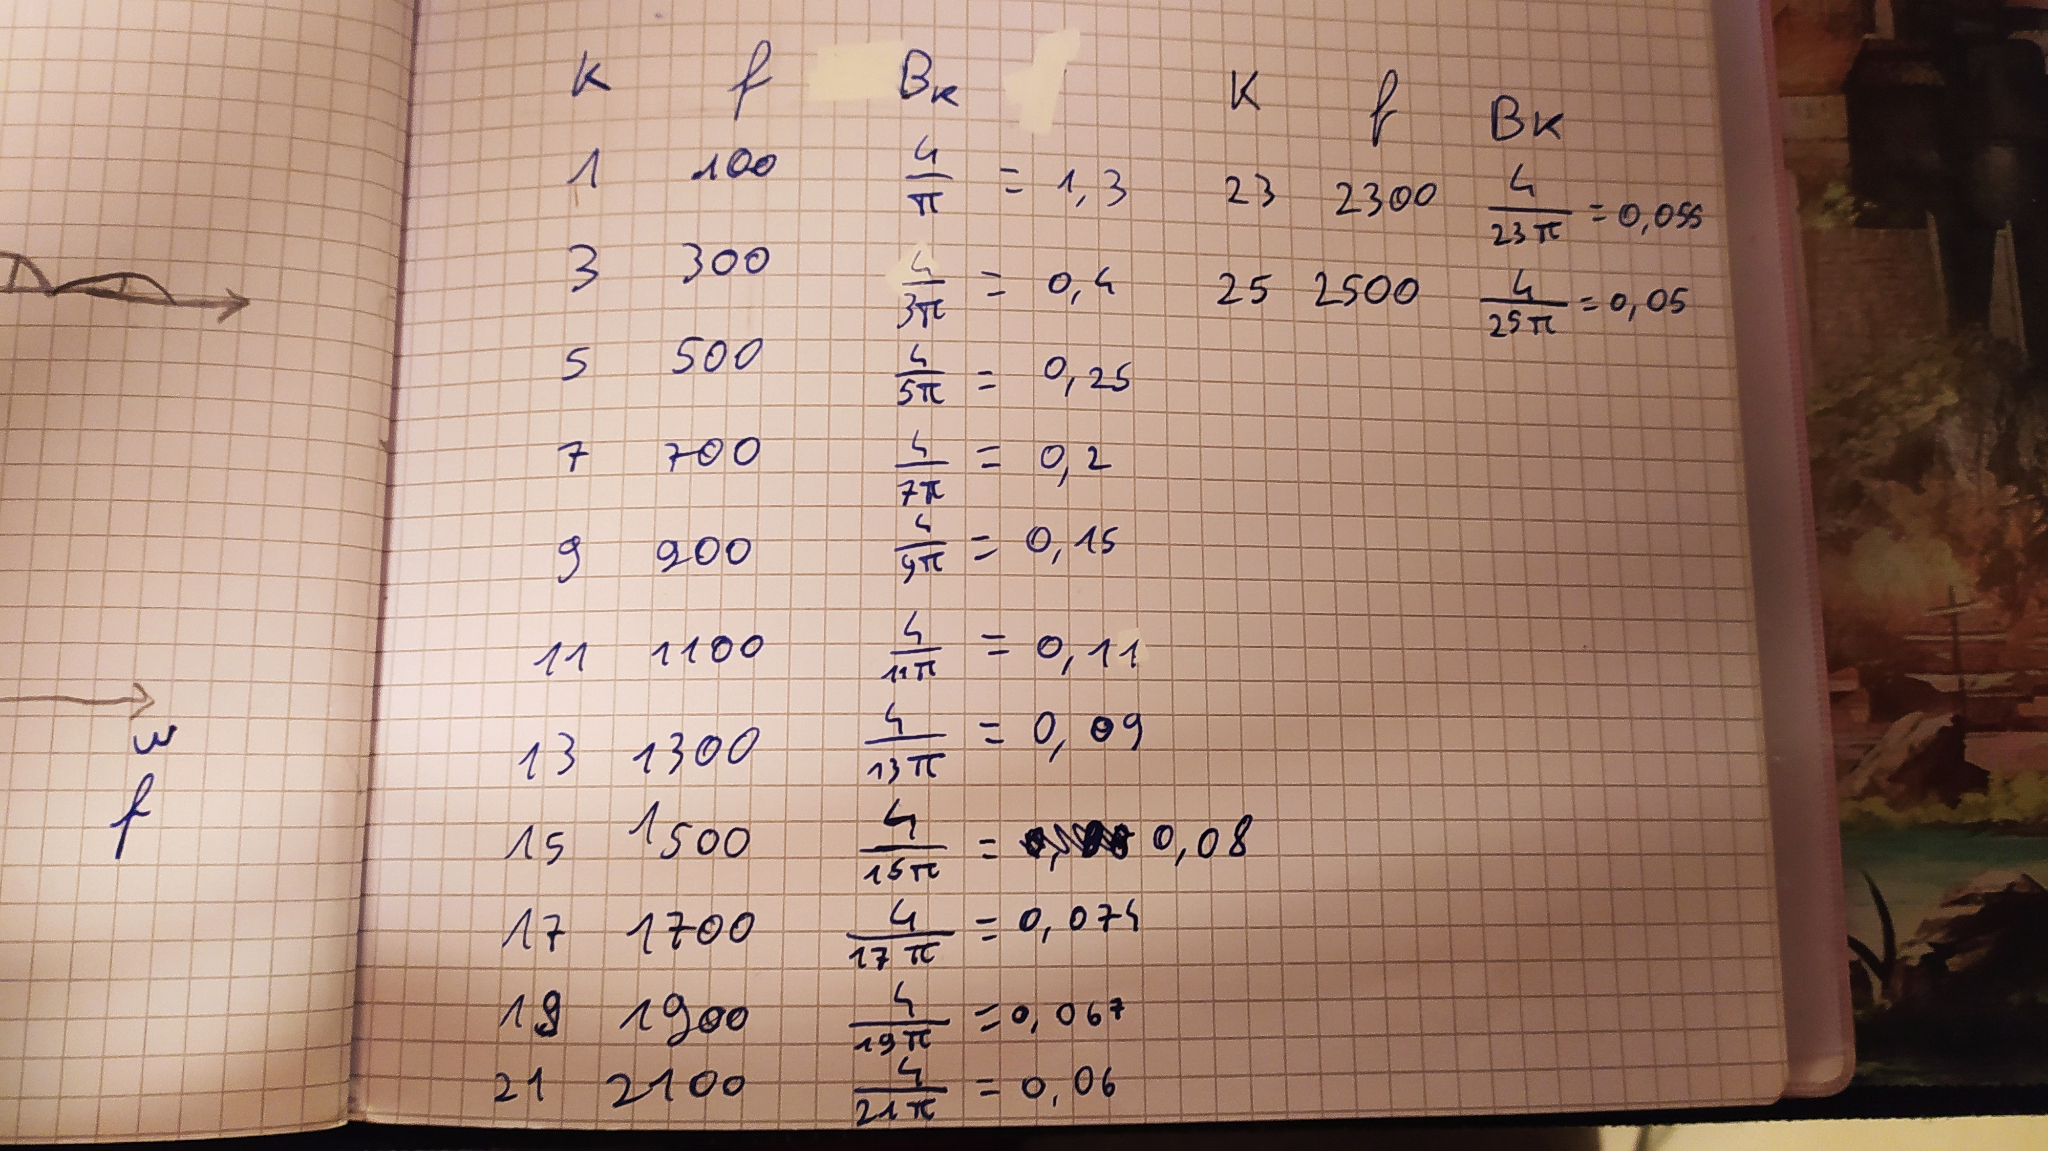 K f Bκ
1 100 4/π = 1,3
3 300 4/3π = 0,4
5 500 4/5π = 0,25
7 700 4/7π = 0,2
9 900 4/9π = 0,15
11 1100 4/11π = 0,11
13 1300 4/13π = 0,09
15 1500 4/15π = 0,08
17 1700 4/17π = 0,074
19 1900 4/19π = 0,067
21 2100 4/21π = 0,06
K f Bκ
23 2300 4/23π = 0,055
25 2500 4/25π = 0,05
w
f